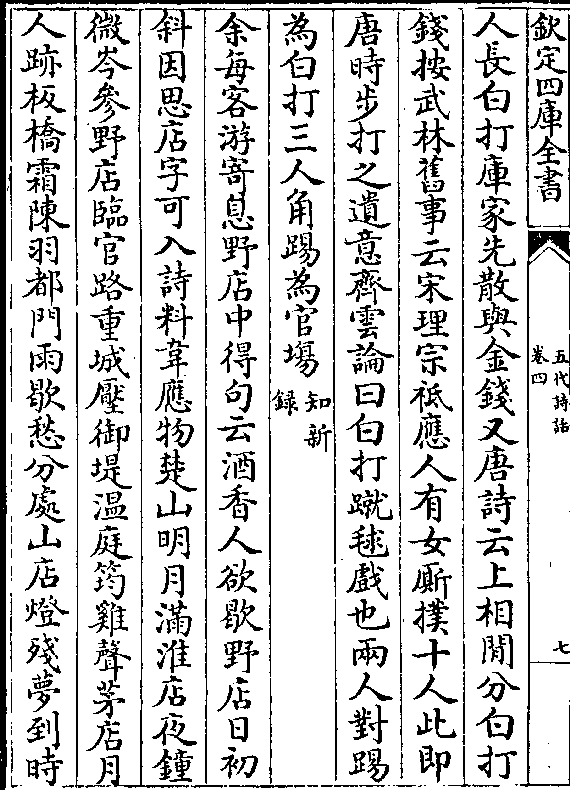 欽定四庫全書
五代詩話
卷四
七
人長白打庫家先散與金錢又唐詩云上相閒分白打
錢按武林舊事云宋理宗祗應人有女厮撲十人此即
唐時步打之遺意齊雲論曰白打蹴毬戲也兩人對踢
為白打三人角踢為官塲
知新
録
余每客游寄息野店中得句云酒香人欲歇野店日初
斜因思店字可入詩料韋應物楚山明月滿淮店夜鐘
微岑參野店臨官路重城壓御堤溫庭筠雞聲茅店月
人跡板橋霜陳羽都門雨歇愁分處山店燈殘夢到時